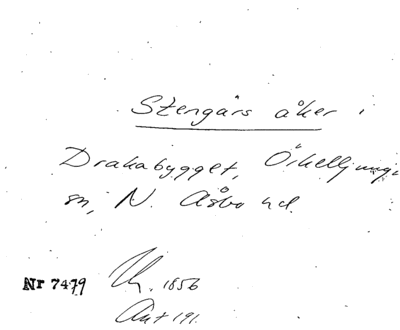 Stengårs åker i
Drakabygget, Örkelljunga
sn, N. Åsbo hd.
Nr 7479
1856
Ant 191.